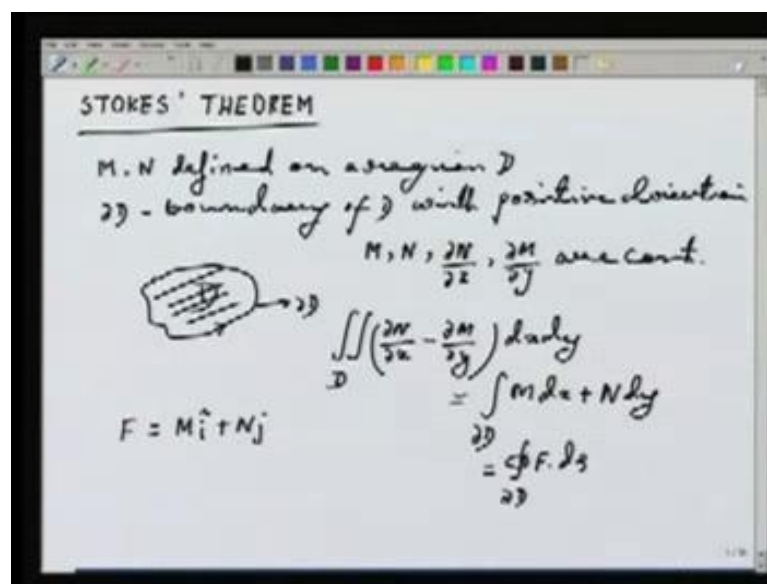 STOKES' THEOREM
M, N defined on a region D
∂D - boundary of D with positive orientation
M, N, ∂N/∂x, ∂M/∂y are cont.
D → ∂D
∬_D (∂N/∂x - ∂M/∂y) dxdy
= ∫_∂D M dx + N dy
F = Mî + Nj
= ∮_∂D F. ds